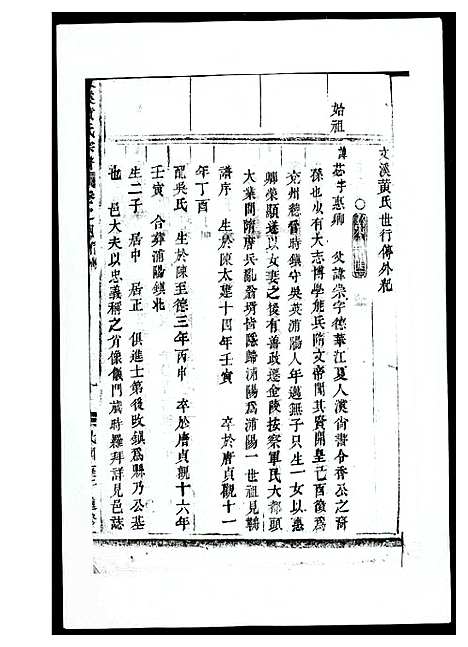 文溪黃氏世行傳外紀
始祖
諱苾字惠卿 父諱崇字德華江夏人漢尚書令香公之裔
孫也少有大志博學能兵隋文帝聞其賢開皇己酉徵為
兗州總管時鎮守吳英浦陽人年邁無子只生一女以惠
卿榮顯遂以女妻之後有善政遷金陵按察軍民大都頭
大業間隋唐兵亂翁壻皆隱歸浦陽為浦陽一世祖見鞠
譜序 生於陳太建十四年壬寅 卒於唐貞觀十一
年丁酉
配吳氏 生於陳至德三年丙申 卒於唐貞觀十六年
壬寅 合葬浦陽鎮北
生二子 居中 居正 俱進士第後改鎮為縣乃公基
也 邑大夫以忠義稱之肖像儀門歲時羅拜詳見邑誌
黃氏宗譜